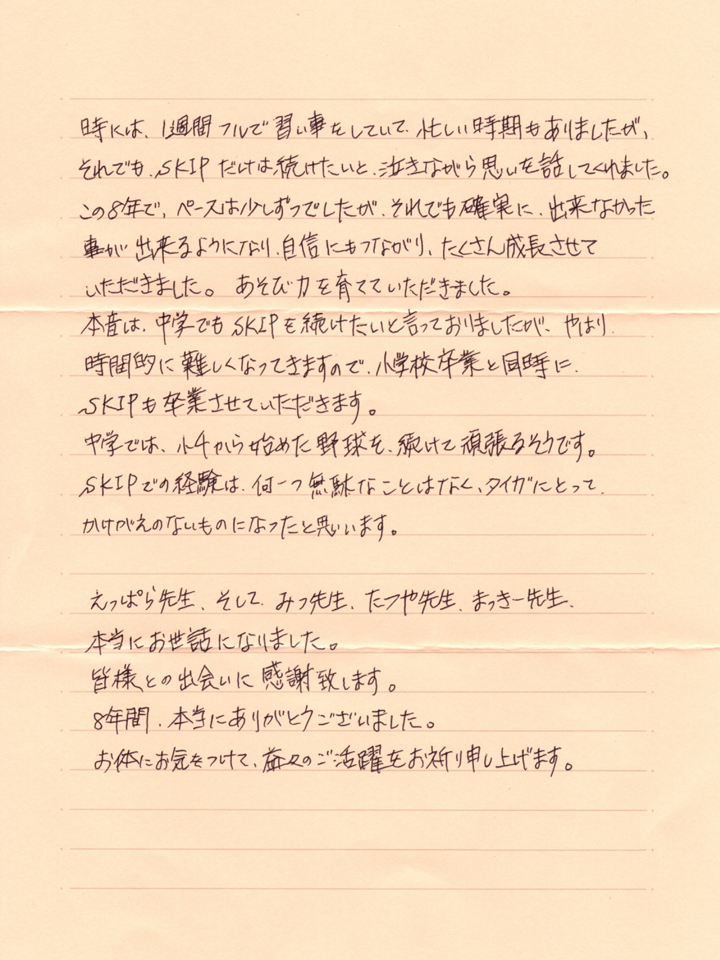 時には、1週間フルで習い事をしていて、忙しい時期もありましたが、
それでも、SKIPだけは続けたいと、泣きながら思いを話してくれました。
この8年で、ペースは少しずつでしたが、それでも確実に、出来なかった
事が出来るようになり、自信にもつながり、たくさん成長させて
いただきました。 あそび力を育てていただきました。
本音は、中学でもSKIPを続けたいと言っておりましたが、やはり、
時間的に難しくなってきますので、小学校卒業と同時に、
SKIPも卒業させていただきます。
中学では、小4から始めた野球を、続けて頑張るそうです。
SKIPでの経験は、何一つ無駄なことはなく、タイガにとって、
かけがえのないものになったと思います。
えっぱら先生、そして、みつ先生、たつや先生、まっきー先生、
本当にお世話になりました。
皆様との出会いに感謝致します。
8年間、本当にありがとうございました。
お体にお気をつけて、益々のご活躍をお祈り申し上げます。